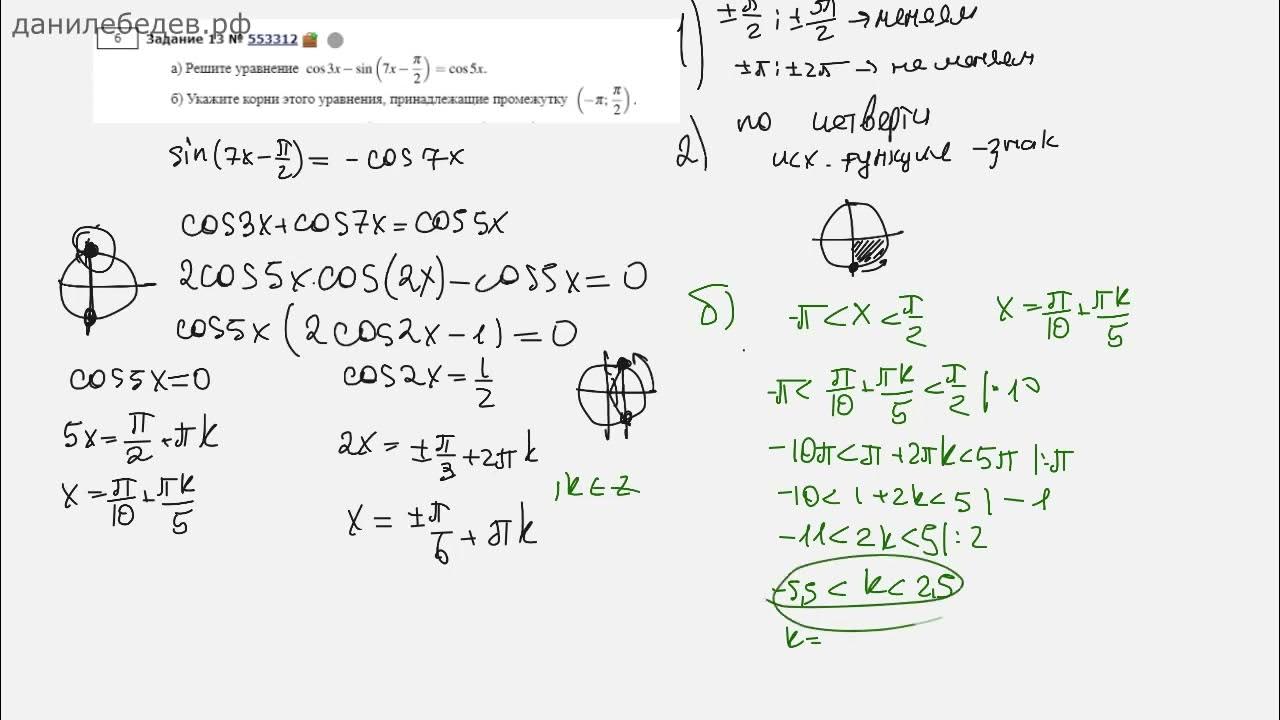 данилебедев.рф
6 Задание 13 № 553312
а) Решите уравнение cos 3x − sin (7x − π/2) = cos 5x.
б) Укажите корни этого уравнения, принадлежащие промежутку (−π; π/2).
sin(7x − π/2) = −cos 7x
cos3x + cos7x = cos5x
2cos5x·cos(2x) − cos5x = 0
cos5x (2cos2x − 1) = 0
cos5x = 0
5x = π/2 + πk
x = π/10 + πk/5
cos2x = 1/2
2x = ±π/3 + 2πk
x = ±π/6 + πk
, k ∈ Z
1) ±π/2 ; ±3π/2 → меняем
±π ; ±2π → не меняем
2) по четверти
исх. функции − знак
б) −π < x < π/2 x = π/10 + πk/5
−π < π/10 + πk/5 < π/2 |·10
−10π < π + 2πk < 5π |:π
−10 < 1 + 2k < 5 | −1
−11 < 2k < 5 | : 2
−5,5 < k < 2,5
k =